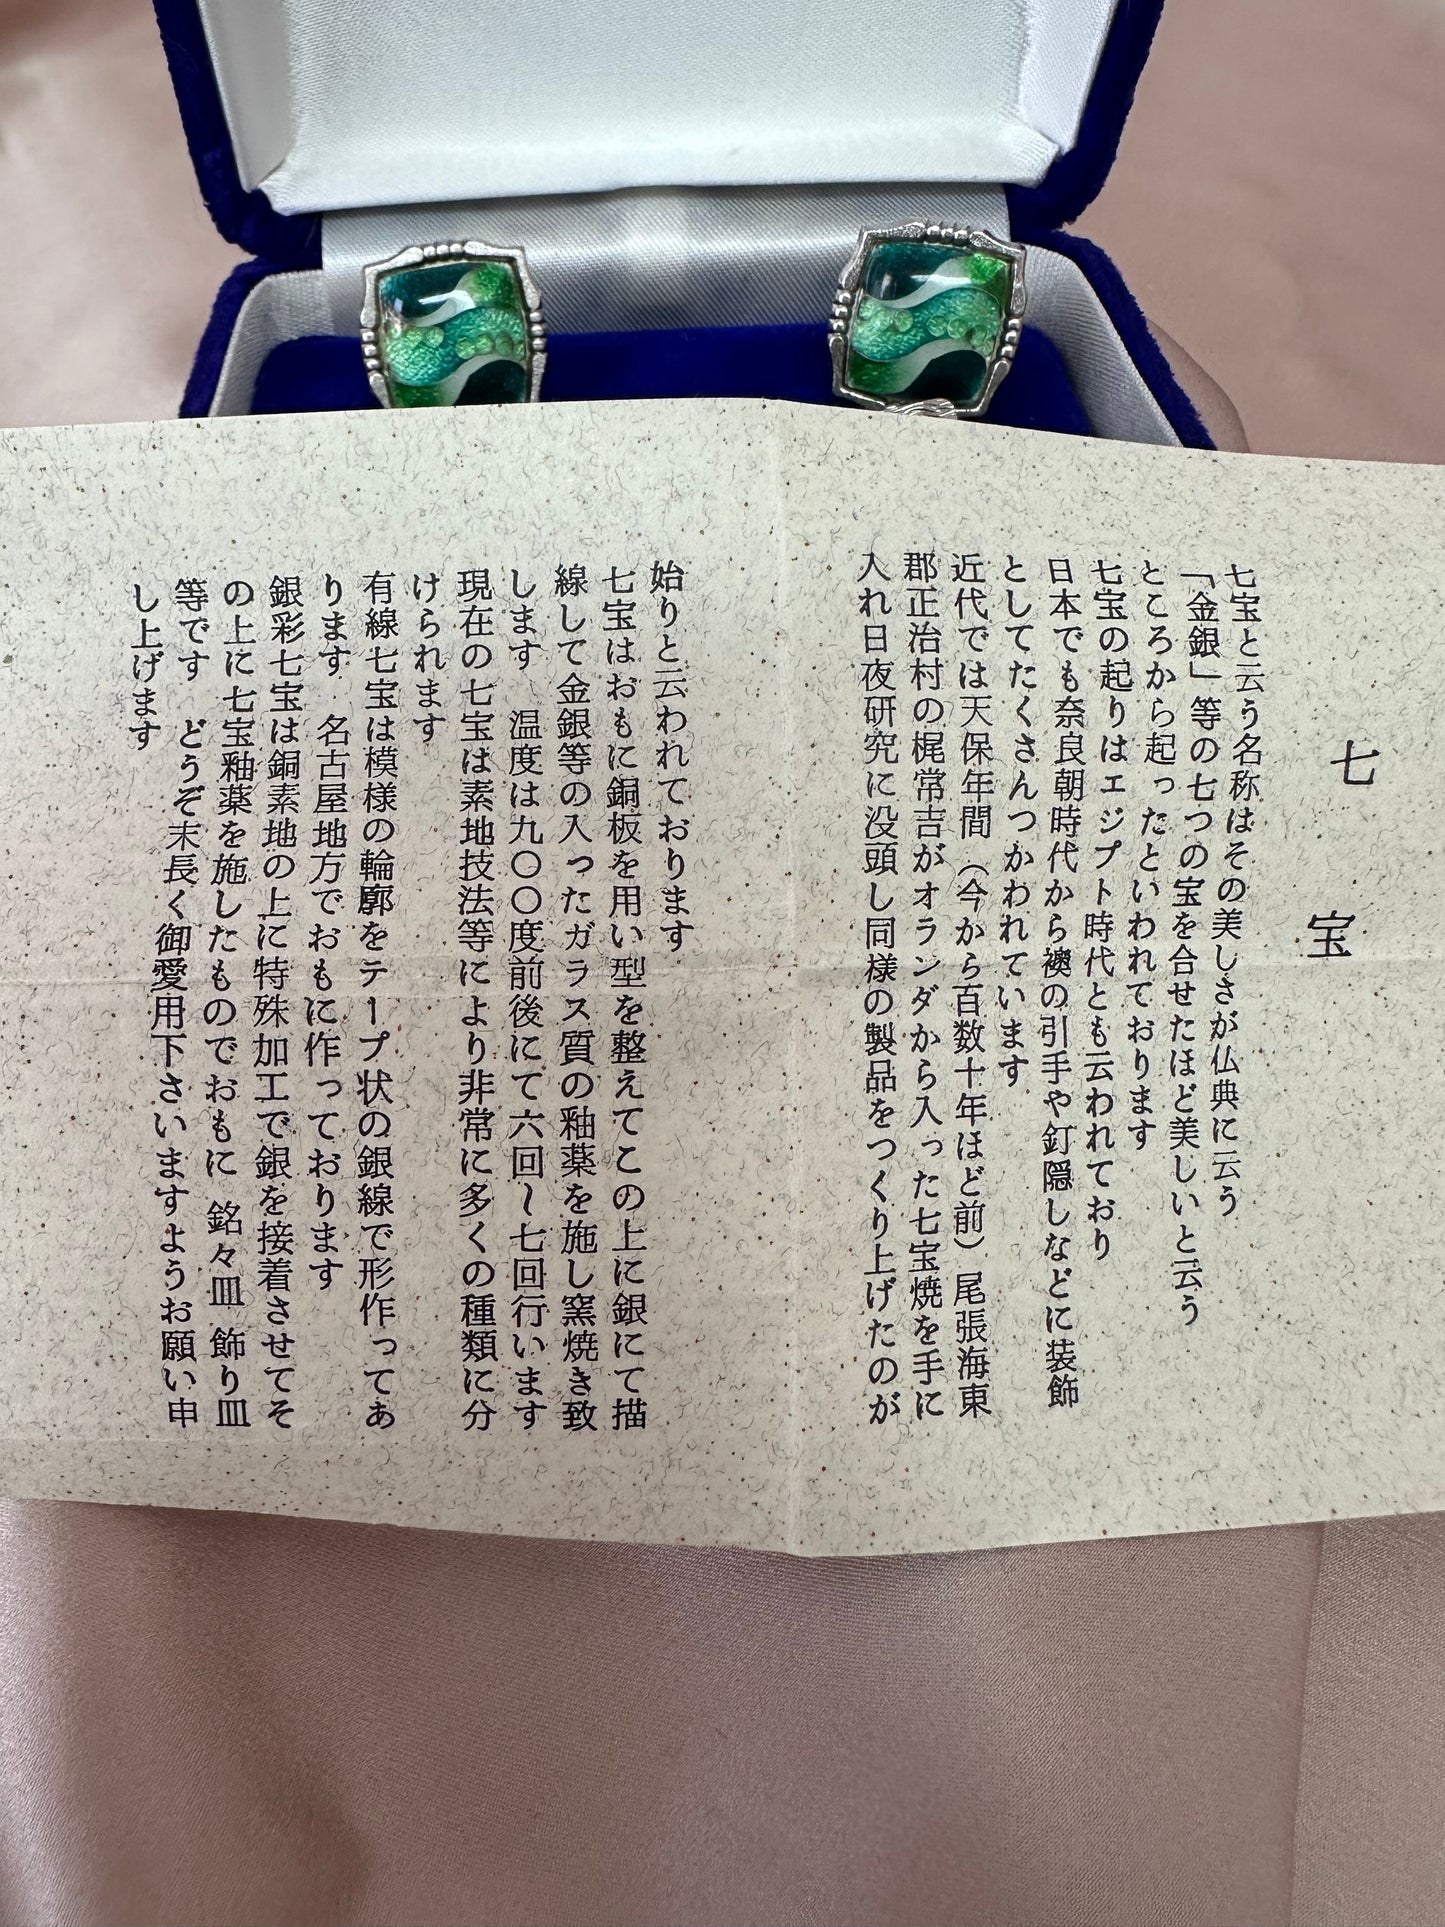 七宝
七宝と云う名称はその美しさが仏典に云う
「金銀」等の七つの宝を合せたほど美しいと云う
ところから起ったといわれております
七宝の起りはエジプト時代とも云われており
日本でも奈良朝時代から襖の引手や釘隠しなどに装飾
としてたくさんつかわれています
近代では天保年間(今から百数十年ほど前)尾張海東
郡正治村の梶常吉がオランダから入った七宝焼を手に
入れ日夜研究に没頭し同様の製品をつくり上げたのが
始りと云われております
七宝はおもに銅板を用い型を整えてこの上に銀にて描
線して金銀等の入ったガラス質の釉薬を施し窯焼き致
します 温度は九〇〇度前後にて六回〜七回行います
現在の七宝は素地技法等により非常に多くの種類に分
けられます
有線七宝は模様の輪廓をテープ状の銀線で形作ってあ
ります 名古屋地方でおもに作っております
銀彩七宝は銅素地の上に特殊加工で銀を接着させてそ
の上に七宝釉薬を施したものでおもに 銘々皿 飾り皿
等です どうぞ末長く御愛用下さいますようお願い申
し上げます